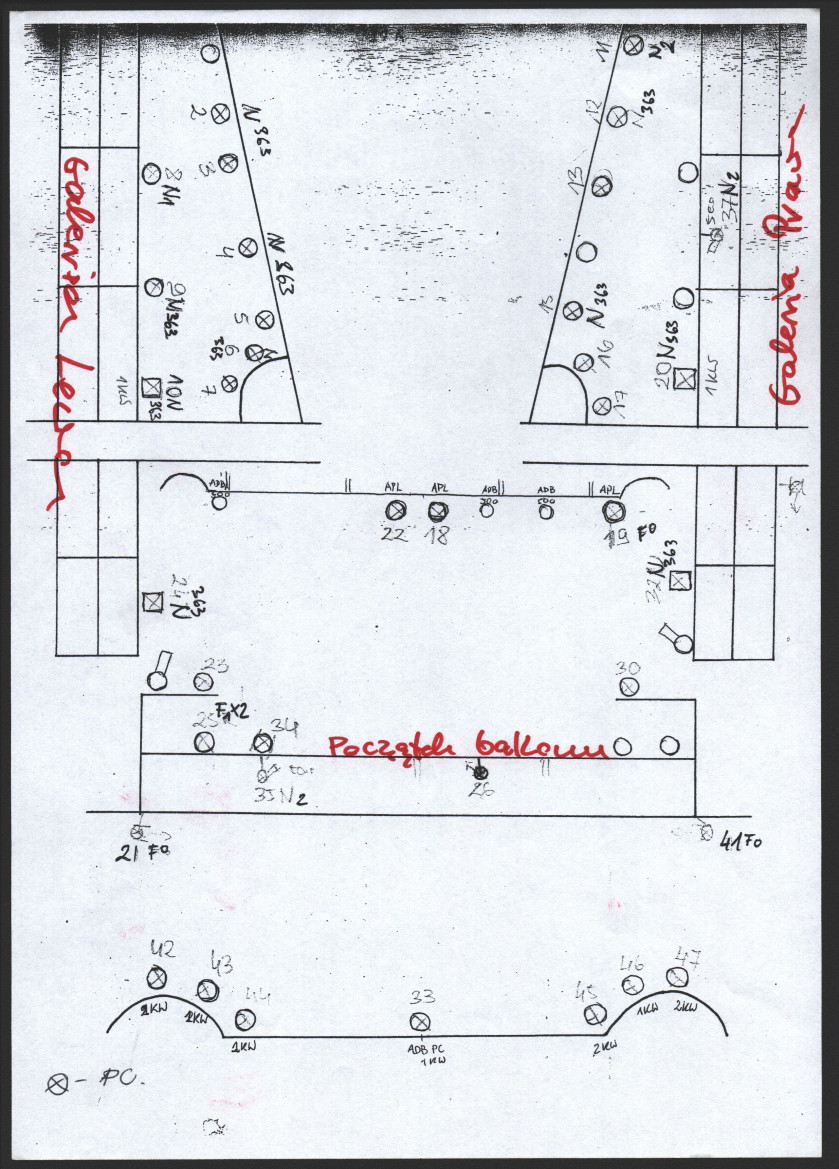 11
N2
2
N 363
12
N363
3
8 N1
13
37 N2
500
Galeria Prawa
Galeria Lewa
4
N 363
9 N363
5
15 N363
6
N 363
7
10 N
363
1KW
16
17
20 N363
1KW
ADB
500
APL
APL
ADB
500
ADB
500
APL
22
18
19 F0
24 N 363
32 N 363
23
30
25
F1X2
34
Początek balkonu
35 N2
26
21 F0
41 F0
42
43
44
33
45
46
47
2KW
2KW
1KW
ADB PC
1KW
2KW
1KW
2KW
- PC.